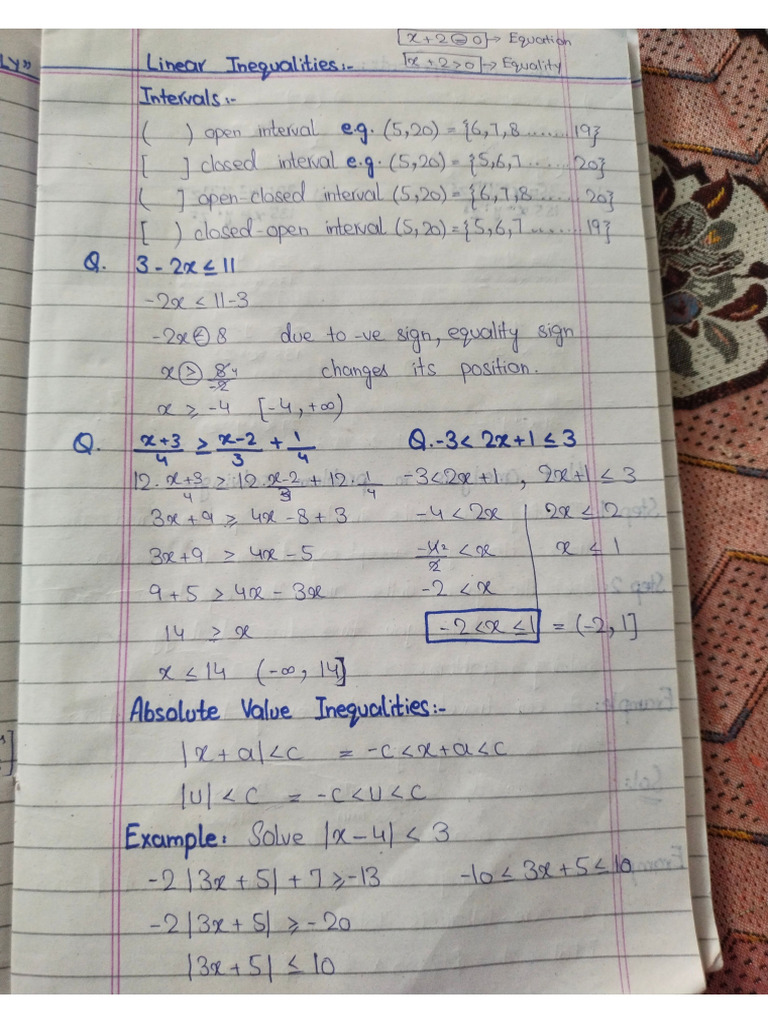 LY»
x+2=0 → Equation
Linear Inequalities:- x+2>0 → Equality
Intervals:-
( ) open interval e.g. (5,20) = {6,7,8 ....... 19}
[ ] closed interval e.g. (5,20) = {5,6,7 ....... 20}
( ] open-closed interval (5,20) = {6,7,8 ....... 20}
[ ) closed-open interval (5,20) = {5,6,7 ........ 19}
Q. 3 - 2x ≤ 11
-2x ≤ 11-3
-2x ≤ 8 due to -ve sign, equality sign
x ≥ 8/-2 4 changes its position.
x ≥ -4 [-4, +∞)
Q. x+3/4 ≥ x-2/3 + 1/4 Q. -3 < 2x+1 ≤ 3
12. x+3/4 ≥ 12. x-2/3 + 12. 1/4 -3<2x+1 , 2x+1 ≤ 3
3x+9 ≥ 4x-8+3 -4 < 2x 2x ≤ 2
3x+9 ≥ 4x-5 -4/2 2 < x x ≤ 1
9+5 ≥ 4x-3x -2 < x
14 ≥ x -2<x≤1 = (-2, 1]
x ≤ 14 (-∞, 14]
Absolute Value Inequalities:-
|x+a|<c = -c<x+a<c
|U| < C = -C<U<C
Example: Solve |x-4| < 3
-2|3x+5|+7 ≥ -13 -10 ≤ 3x+5 ≤ 10
-2|3x+5| ≥ -20
|3x+5| ≤ 10